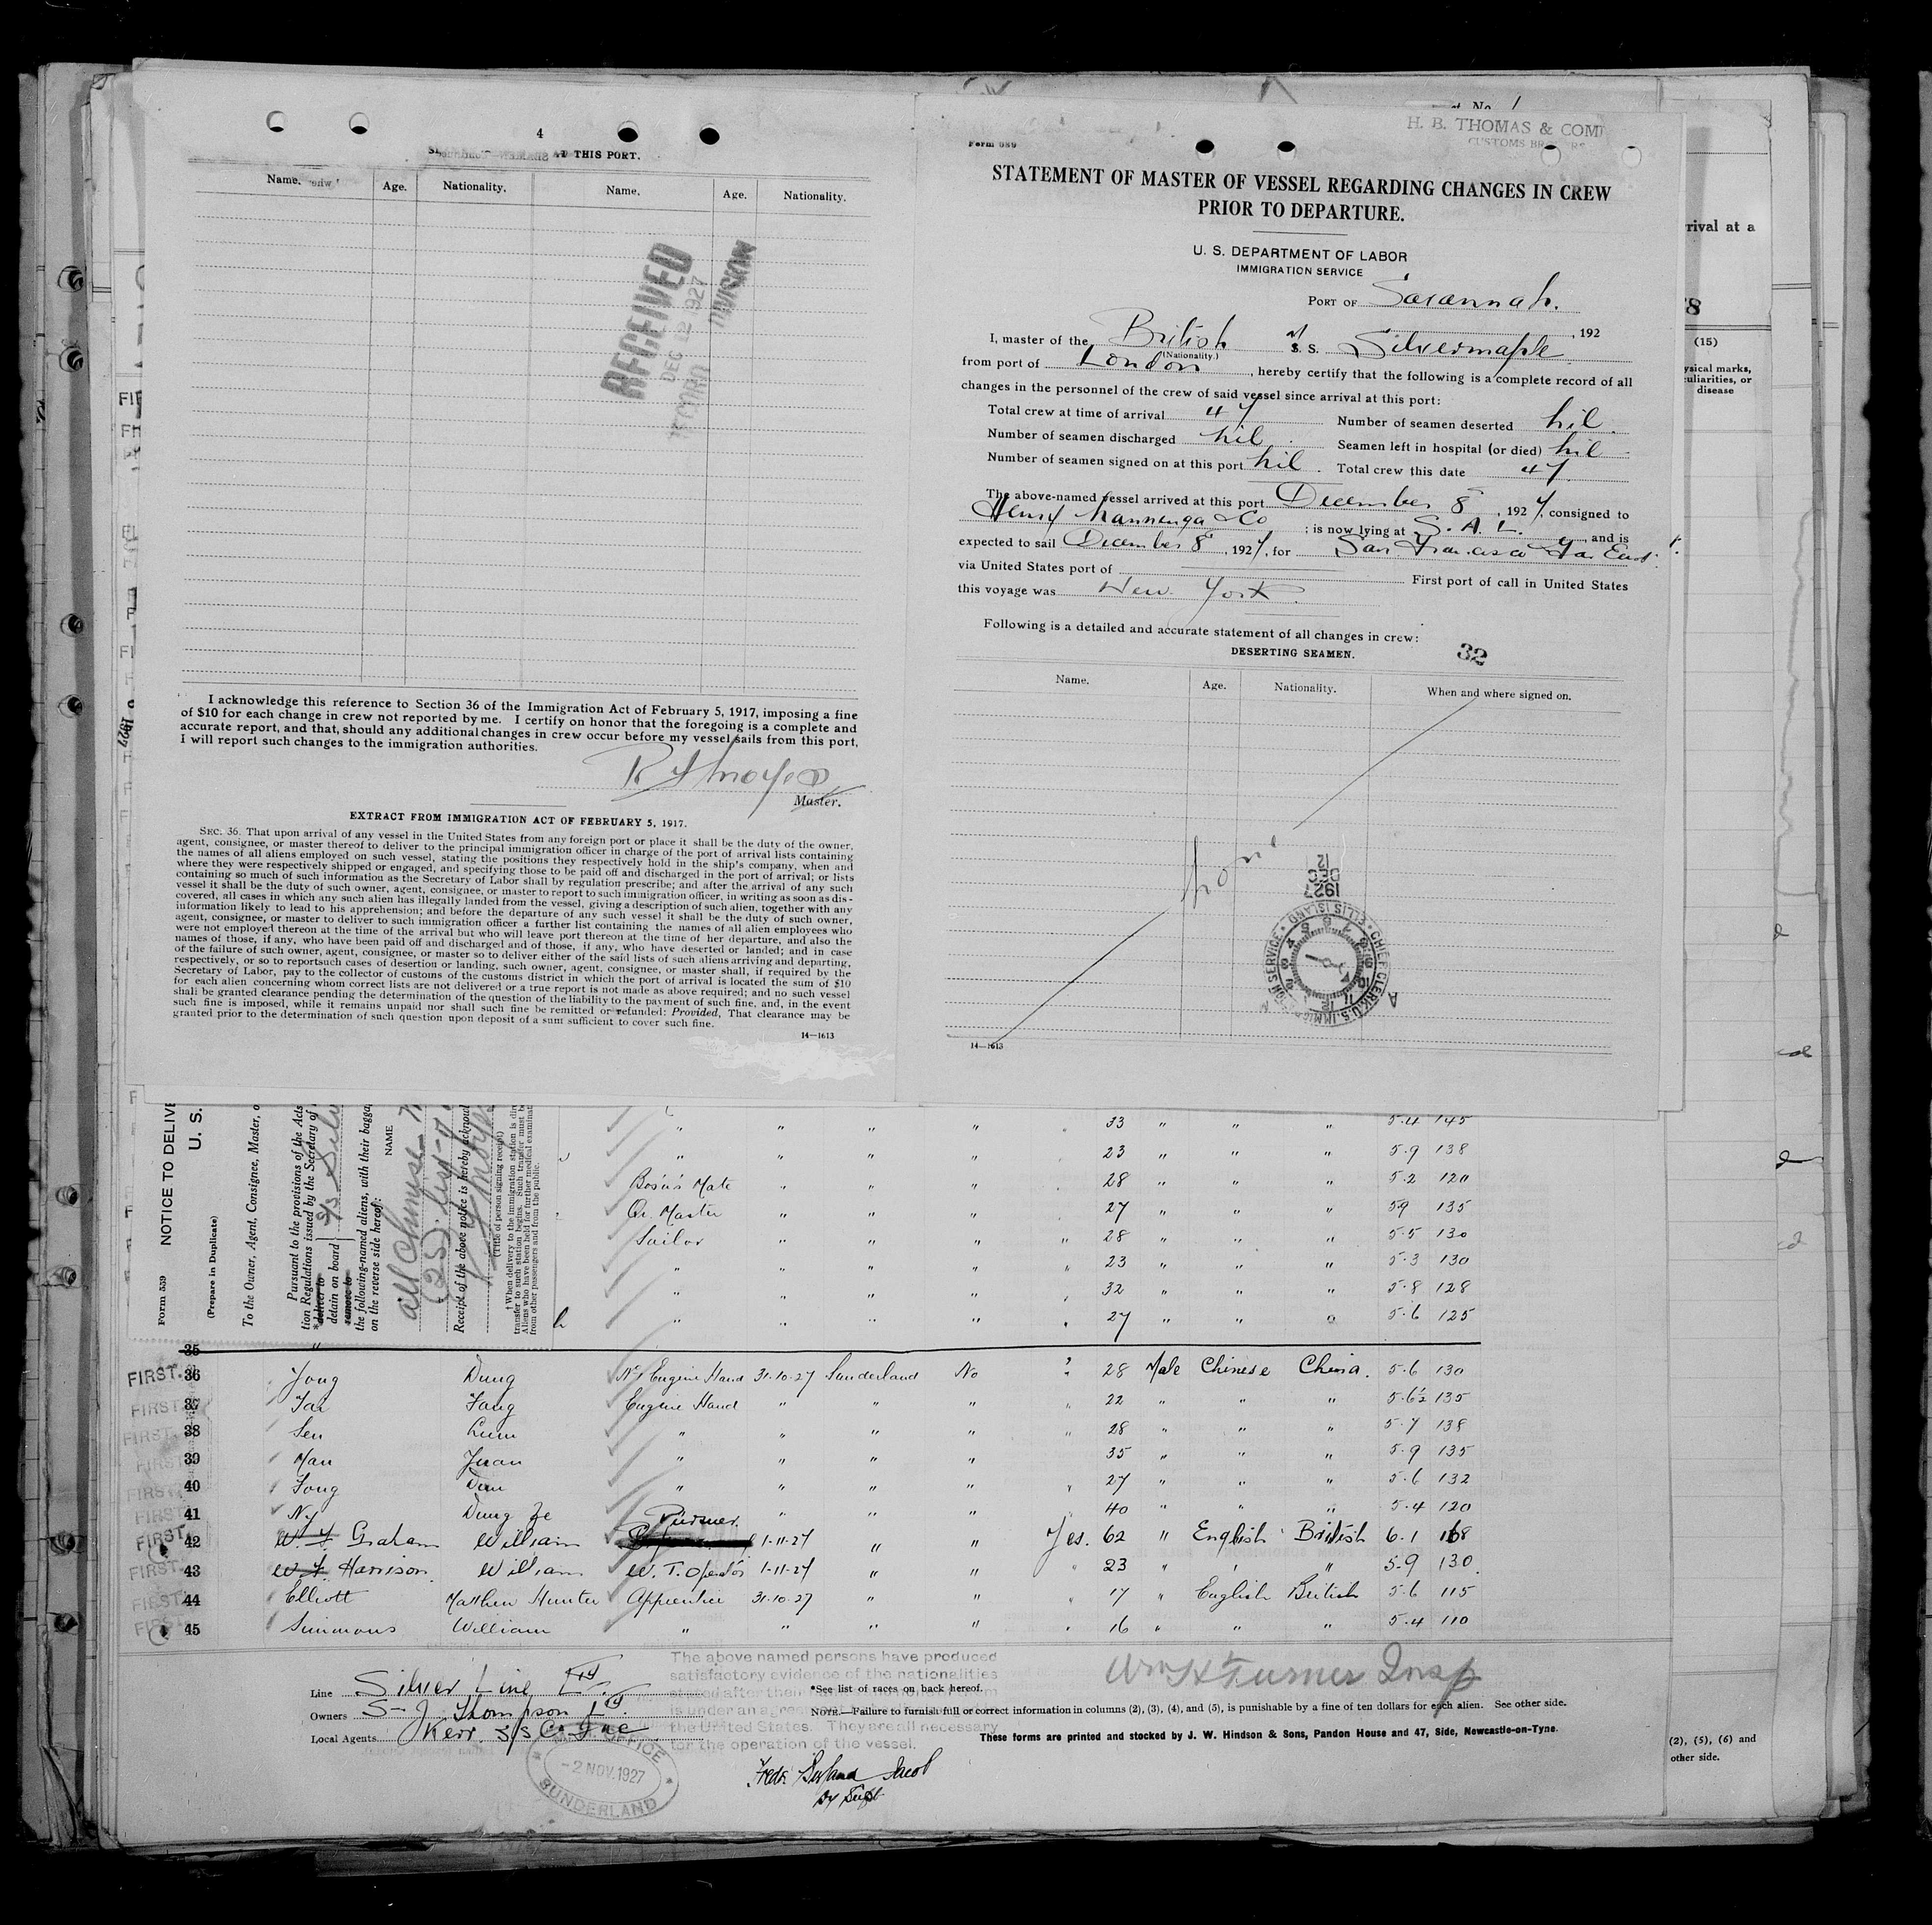 4
AT THIS PORT.
Name. Age. Nationality. Name. Age. Nationality.
RECEIVED
DEC 12 1927
RECORD DIVISION
I acknowledge this reference to Section 36 of the Immigration Act of February 5, 1917, imposing a fine
of $10 for each change in crew not reported by me. I certify on honor that the foregoing is a complete and
accurate report, and that, should any additional changes in crew occur before my vessel sails from this port,
I will report such changes to the immigration authorities.
Master.
EXTRACT FROM IMMIGRATION ACT OF FEBRUARY 5, 1917.
SEC. 36. That upon arrival of any vessel in the United States from any foreign port or place it shall be the duty of the owner,
agent, consignee, or master thereof to deliver to the principal immigration officer in charge of the port of arrival lists containing
the names of all aliens employed on such vessel, stating the positions they respectively hold in the ship's company, when and
where they were respectively shipped or engaged, and specifying those to be paid off and discharged in the port of arrival; or lists
containing so much of such information as the Secretary of Labor shall by regulation prescribe; and after the arrival of any such
vessel it shall be the duty of such owner, agent, consignee, or master to report to such immigration officer, in writing as soon as dis-
covered, all cases in which any such alien has illegally landed from the vessel, giving a description of such alien, together with any
information likely to lead to his apprehension; and before the departure of any such vessel it shall be the duty of such owner,
agent, consignee, or master to deliver to such immigration officer a further list containing the names of all alien employees who
were not employed thereon at the time of the arrival but who will leave port thereon at the time of her departure, and also the
names of those, if any, who have been paid off and discharged and of those, if any, who have deserted or landed; and in case
of the failure of such owner, agent, consignee, or master so to deliver either of the said lists of such aliens arriving and departing,
respectively, or so to report such cases of desertion or landing, such owner, agent, consignee, or master shall, if required by the
Secretary of Labor, pay to the collector of customs of the customs district in which the port of arrival is located the sum of $10
for each alien concerning whom correct lists are not delivered or a true report is not made as above required; and no such vessel
shall be granted clearance pending the determination of the question of the liability to the payment of such fine, and, in the event
such fine is imposed, while it remains unpaid nor shall such fine be remitted or refunded: Provided, That clearance may be
granted prior to the determination of such question upon deposit of a sum sufficient to cover such fine.
14—1613
No. 1
H. B. THOMAS & COM
CUSTOMS BROKERS
Form 689
STATEMENT OF MASTER OF VESSEL REGARDING CHANGES IN CREW
PRIOR TO DEPARTURE.
U. S. DEPARTMENT OF LABOR
IMMIGRATION SERVICE
PORT OF Savannah.
, 192
I, master of the British S. S. Silvermaple
(Nationality.)
from port of London, hereby certify that the following is a complete record of all
changes in the personnel of the crew of said vessel since arrival at this port:
Total crew at time of arrival 47 Number of seamen deserted nil.
Number of seamen discharged nil. Seamen left in hospital (or died) nil
Number of seamen signed on at this port nil. Total crew this date 47.
The above-named vessel arrived at this port December 8, 1927, consigned to
Henry Nannenga & Co; is now lying at S. A. L., and is
expected to sail December 8, 1927, for San Francisco Far East.
via United States port of First port of call in United States
this voyage was New York.
Following is a detailed and accurate statement of all changes in crew:
DESERTING SEAMEN. 32
Name. Age. Nationality. When and where signed on.
None
1927
DEC
12
CHIEF CLERK U.S. IMMIGRATION SERVICE ELLIS ISLAND
14—1613
rival at a
8
(15)
ysical marks,
culiarities, or
disease
Form 559
NOTICE TO DELIVE
U. S.
(Prepare in Duplicate)
To the Owner, Agent, Consignee, Master, o
Pursuant to the provisions of the Acts
tion Regulations issued by the Secretary of
*deliver to
detain on board s/s Silv
remove to
the following-named aliens, with their bagga
on the reverse side hereof:
NAME
all Chinese
(25)
Receipt of the above notice is hereby acknowl
(Title of person signing receipt)
†When delivery to the immigration station is dir
transfer to such station begins. Such transfer must b
Aliens who have been held for further medical examinat
from other passengers and from the public.
" " " " 33 " " " 5.4 145
" " " " 23 " " " 5.9 138
Bos'n's Mate " " " 28 " " " 5.2 120
Qr. Master " " " 27 " " " 5.9 135
Sailor " " " 28 " " " 5.5 130
" " " " 23 " " " 5.3 130
" " " " 32 " " " 5.8 128
" " " " 27 " " " 5.6 125
35
FIRST. 36 Yong Dung No 1 Engine Hand 31.10.27 Sunderland No " 28 Male Chinese China. 5.6 130
FIRST. 37 Tai Fang Engine Hand " " " " 22 " " " 5.6½ 135
FIRST. 38 Sen Lum " " " " " 28 " " " 5.7 138
FIRST. 39 Man Juan " " " " " 35 " " " 5.9 135
FIRST. 40 Fong Dun " " " " " 27 " " " 5.6 132
FIRST. 41 Ny Dung Ze " " " " " 40 " " " 5.4 120
FIRST. 42 Graham William Purser. 1-11-27 " " Yes. 62 " English British 6.1 168
FIRST. 43 Harrison William W. T. Operator 1-11-27 " " " 23 " " " 5.9 130
FIRST. 44 Elliott Matthew Hunter Apprentice 31.10.27 " " " 17 " English British 5.6 115
FIRST. 45 Simmons William " " " " " 16 " " " 5.4 110
The above named persons have produced
satisfactory evidence of the nationalities
the United States. They are all necessary
for the operation of the vessel.
Line Silver Line Ltd.
Owners S. J. Thompson Ltd.
Local Agents Kerr S/S Co. Inc
*See list of races on back hereof.
Wm H Turner Insp
NOTE.—Failure to furnish full or correct information in columns (2), (3), (4), and (5), is punishable by a fine of ten dollars for each alien. See other side.
These forms are printed and stocked by J. W. Hindson & Sons, Pandon House and 47, Side, Newcastle-on-Tyne.
OFFICE
-2 NOV.1927
SUNDERLAND
(2), (5), (6) and
other side.